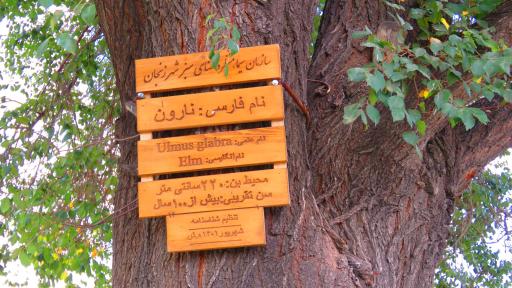 سازمان سیما منظر و فضای سبز شهر زنجان
نام فارسی: نارون
نام علمی: Ulmus glabra
نام انگلیسی: Elm
محیط بن: ۲۲۰ سانتی متر
سن تقریبی: بیش از ۱۰۰ سال
تنظیم شناسنامه
شهریور ۱۴۰۱